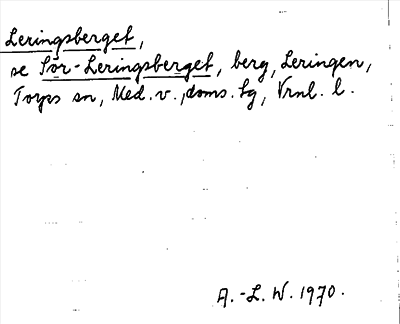 Leringsberget,
se Sör-Leringsberget, berg, Leringen,
Torps sn, Med. v., doms. sg, Vrnl. l.
A.-L. W. 1970.